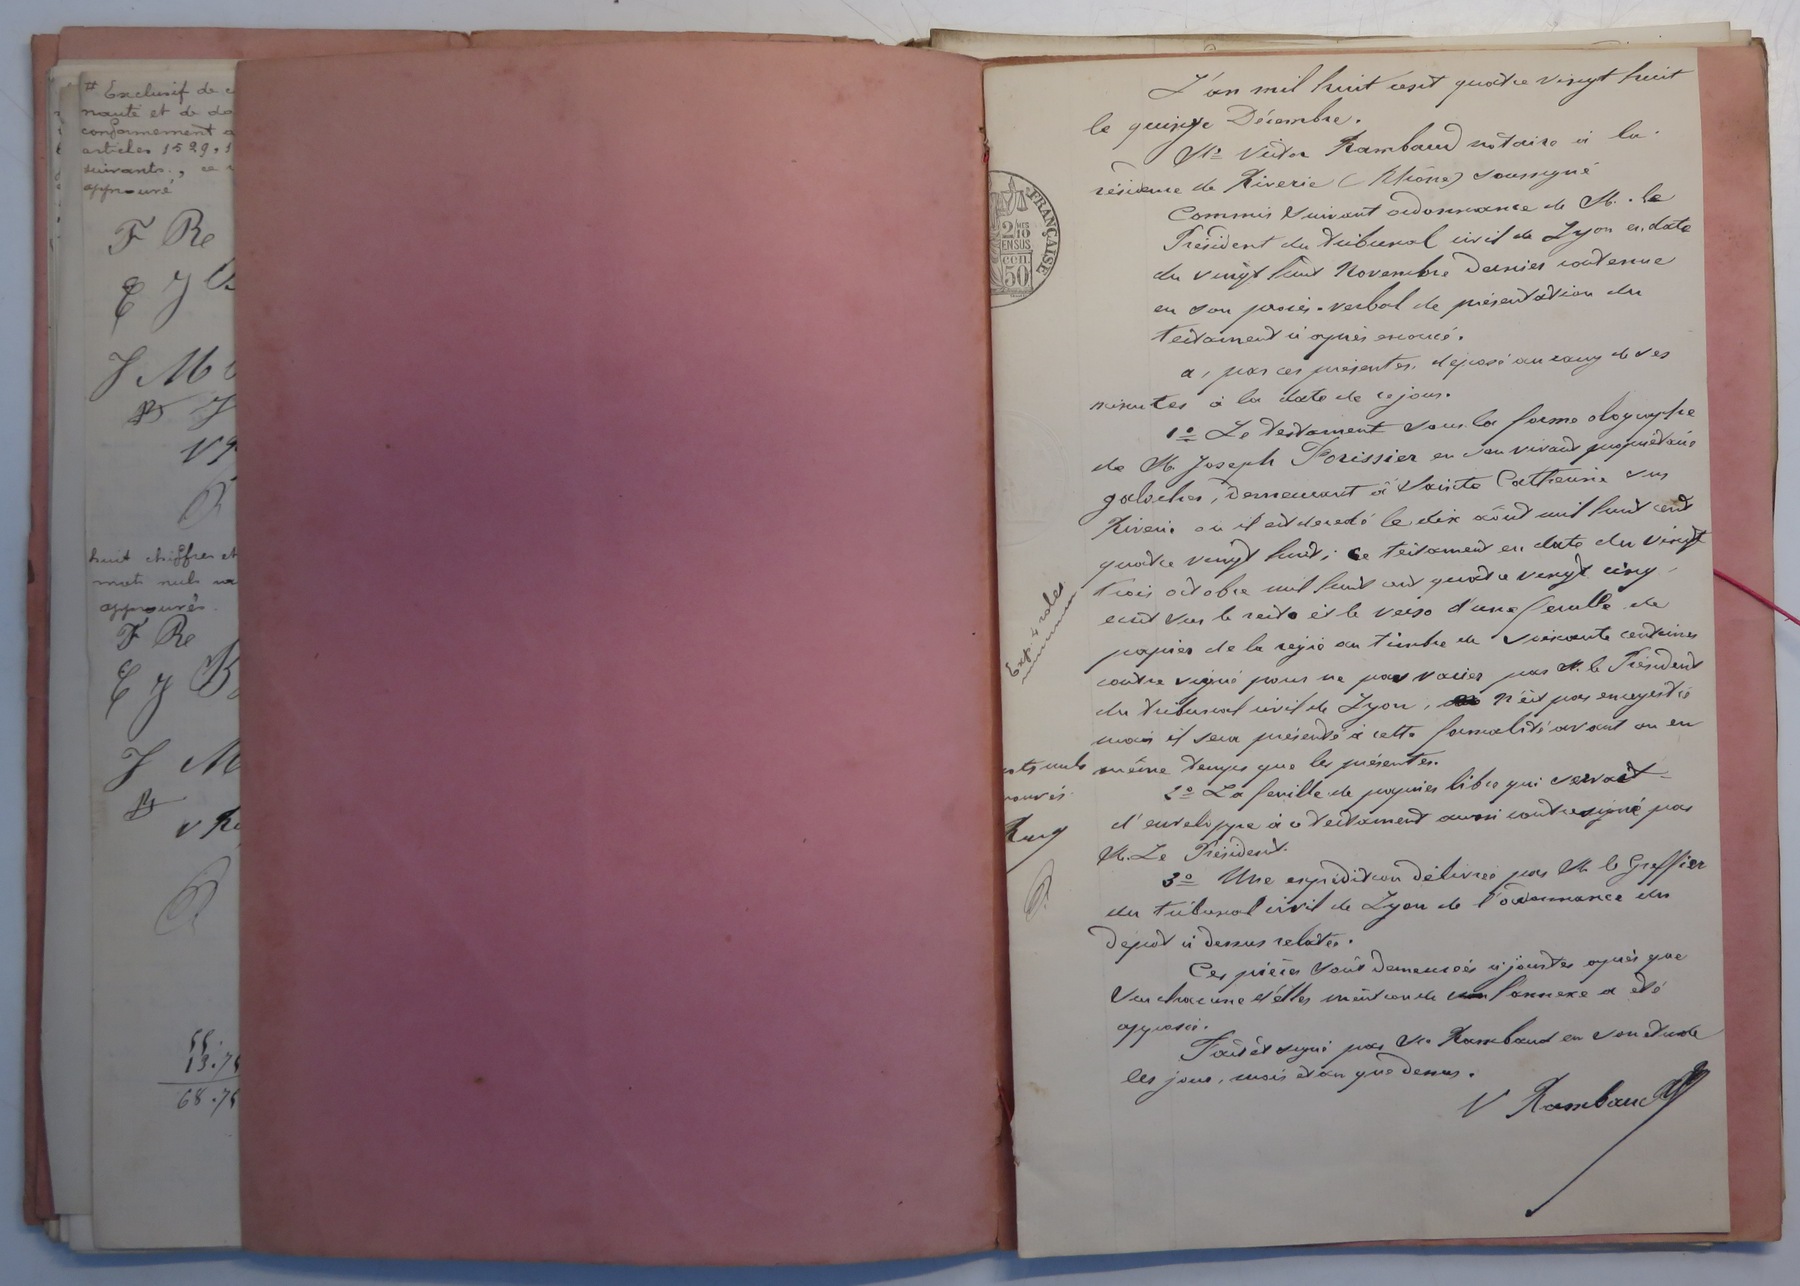 # Exclusif de
nauté et de do
conformement a
articles 1529, 1
suivants., ce
approuvé
F Re
E J B
J M
huit chiffres et
mots nuls
approuvés.
F Re
E J B
J M
V R
55.
13.75
68.75
FRANÇAISE
2/10
EN SUS
cen.
50
L'an mil huit cent quatre vingt huit
le quinze Décembre.
Me Victor Rambaud notaire à la
résidence de Riverie (Rhône) soussigné
Commis suivant ordonnance de M. le
Président du tribunal civil de Lyon en date
du vingt huit Novembre dernier contenue
en son procès-verbal de présentation du
testament ci après énoncé.
a, par ces présentes, déposé au rang de ses
minutes à la date de ce jour.
1º Le testament sous la forme olographe
de M. Joseph Porissier en son vivant propriétaire
galocher, demeurant à Sainte Catherine sur
Riverie où il est décédé le dix août mil huit cent
quatre vingt huit; ce testament en date du vingt
trois octobre mil huit cent quatre vingt cinq
écrit sur le recto et le verso d'une feuille de
papier de la régie au timbre de soixante centimes
contre signé pour ne pas varier par M. le Président
du tribunal civil de Lyon, n'est pas enregistré
mais il sera présenté à cette formalité avant ou en
même temps que les présentes.
2º La feuille de papier libre qui servait
d'enveloppe à ce testament aussi contresigné par
M. Le Président.
3º Une expédition délivrée par M. le Greffier
du tribunal civil de Lyon de l'ordonnance du
dépot ci dessus relatée.
Ces pièces sont demeurées ci jointes après que
sur chacune d'elles mention de l'annexe a été
apposée.
Fait et signé par Me Rambaud en son étude
les jour, mois et an que dessus.
V Rambaud
Exp. 4 roles
ots nuls
rouvés.